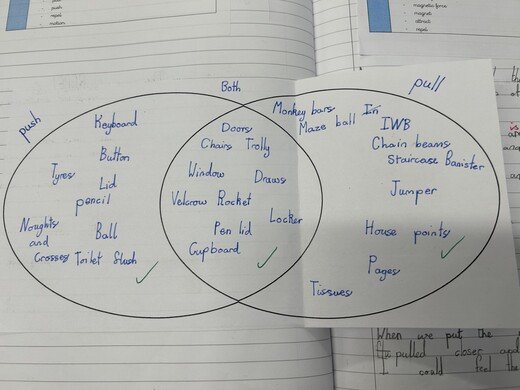 push
repel
motion
magnetic force
magnet
attract
repel
Both
push
pull
Keyboard
Button
Tyres
Lid
pencil
Noughts
and
Crosses
Ball
Toilet flush
Doors
Chairs Trolly
Window
Draws
Velcrow Rocket
Locker
Pen lid
Cupboard
Monkey bars
Maze ball
IWB
Chain beams
Staircase Banister
Jumper
House points
Pages
Tissues
When we put the
pulled closer and
I could feel the